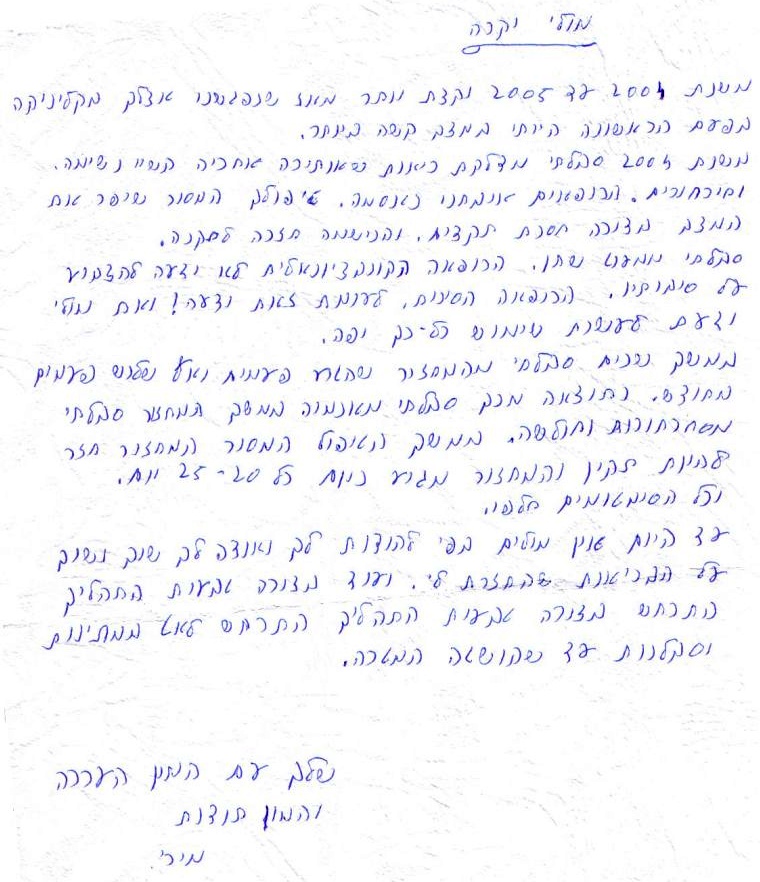 מולי יקרה
משנת 2001 עד 2005 וקצת יותר מאז שנפגשנו אצלך בקליניקה
בפעם הראשונה הייתי במצב קשה ביותר.
משנת 2001 סבלתי מדלקת ריאות שהותירה אחריה קשיי נשימה.
וסירחורים. הרופאים אבחנו כאסמה. טיפולך המסור שיפר את
המצב בצורה חסרת תקצים. והנשימה חזרה לתקנה.
סבלתי ממעט שתן. הרופאה הקונבנציונאלית לא ידעה להצביע
על סיבותיו. הרופאה הסינית, לעומת זאת ידעה! ואת מולי
ידעת לעשות שימוש כל-כך יפה.
במשך שנים סבלתי מהמחזור שהגיע פעמיים ואף שלוש פעמים
בחודש. כתוצאה מכך סבלתי מאנמיה במשך המחזור סבלתי
מסחרחורות וחולשה. במשך הטיפול המסור המחזור חזר
להיות תקין והמחזור מגיע כיום כל 20-25 יום.
וכל הסימטומים חלפו.
עד היום אין מולים בפי להודות לך ואודה לך שוב ושוב
על הבריאות שהחזרת לי. ועוד בצורה טבעית התהליך
התרחש בצורה טבעית התהליך התרחש לאט במתינות
וסבלנות עד שהושגה המטרה.
שלך עם המון הערכה
והמון תודות
מירי